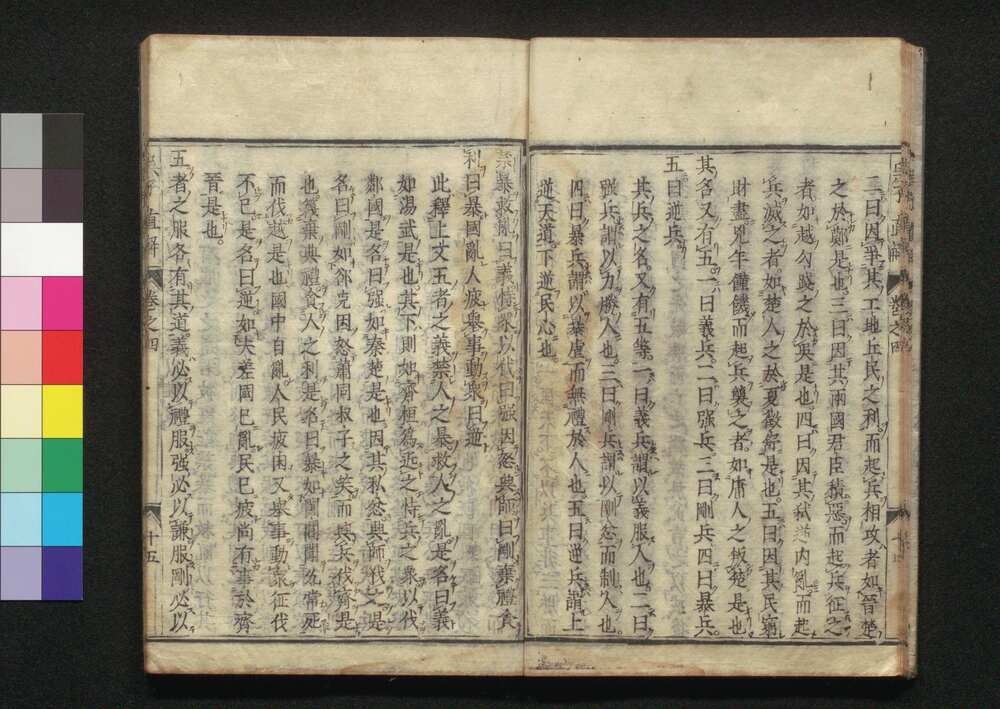 二曰因爭其工地丘民之利而起兵相攻者如晉楚
之於鄭是也三曰因其兩國君臣積惡而起兵征之
者如越勾踐之於吳是也四曰因其弑逆內亂而起
兵滅之者如楚人之於夏徵舒是也五曰因其民窮
財盡兇年饉饑而起兵襲之者如庸人之叛楚是也
其名又有五一曰義兵二曰强兵三曰剛兵四曰暴兵
五曰逆兵
其兵之名又有五等一曰義兵謂以義服人也二曰
强兵謂以力勝人也三曰剛兵謂以剛忿而制人也
四曰暴兵謂以暴虐而無禮於人也五曰逆兵謂上
逆天道下逆民心也
禁暴救亂曰義恃衆以伐曰强因怒興師曰剛棄禮貪
利曰暴國亂人疲舉事動衆曰逆
此釋上文五者之義禁人之暴救人之亂是名曰義
如湯武是也其下則如齊桓爲近之恃兵之衆以伐
鄰國是名曰强如秦楚是也因其私忿興師伐之是
名曰剛如郤克因怒蕭同叔子之笑而興兵伐齊是
也幾棄典禮貪人之利是名曰暴如闔閭聞允常死
而伐越是也國中自亂人民疲困又舉事動衆征伐
不已是名曰逆如夫差國已亂民已疲尚有事於齊
晉是也
五者之服各有其道義必以禮服强必以謙服剛必以
直解
卷之四
十五